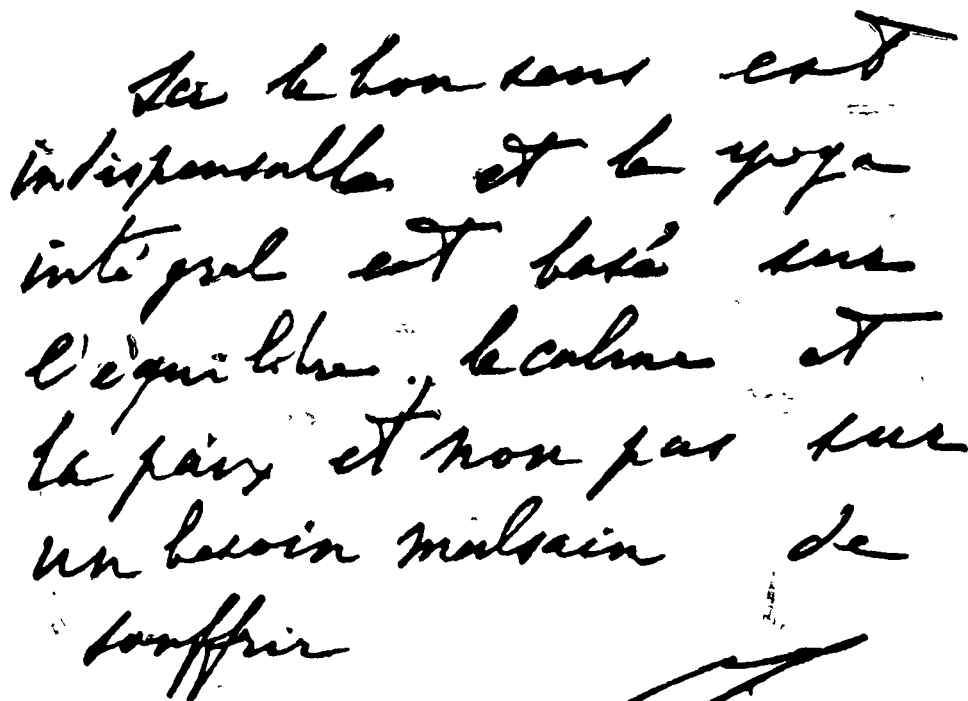 Ici le bon sens est
indispensable et le yoga
intégral est basé sur
l'équilibre, le calme et
la paix et non pas sur
un besoin malsain de
souffrir